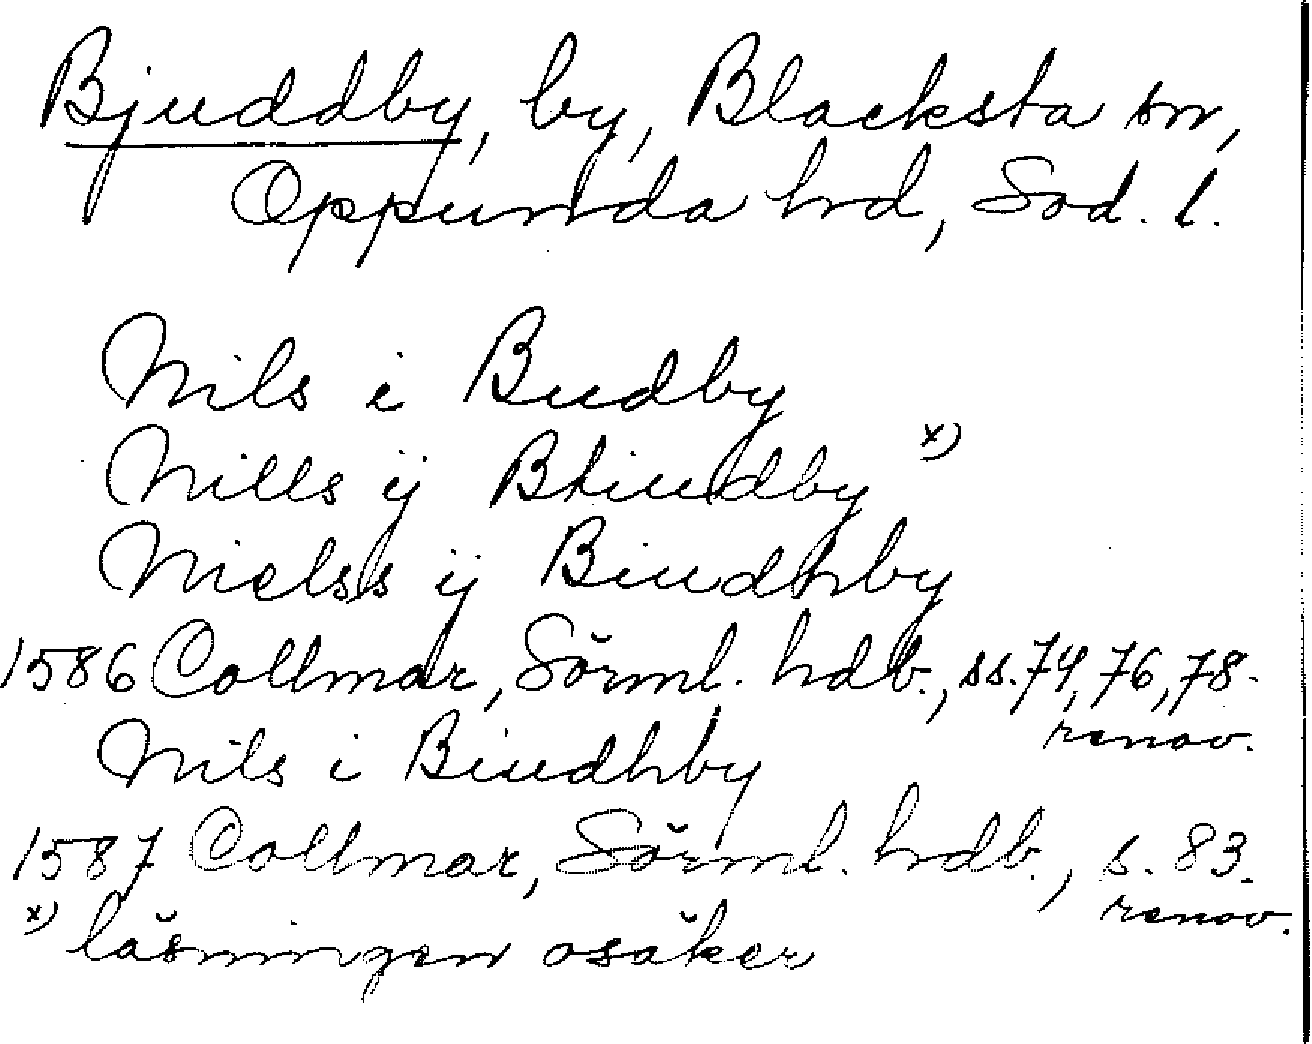 Bjuddby, by, Blacksta sn,
Oppunda hd, Söd. l.
Nils i Budby
Nills ij Btiudby x)
Nielss ij Biudhby
1586 Collmar, Sörml. hdb., ss. 74, 76, 78.
renov.
Nils i Biudhby
1587 Collmar, Sörml. hdb., s. 83.
renov.
x) läsningen osäker